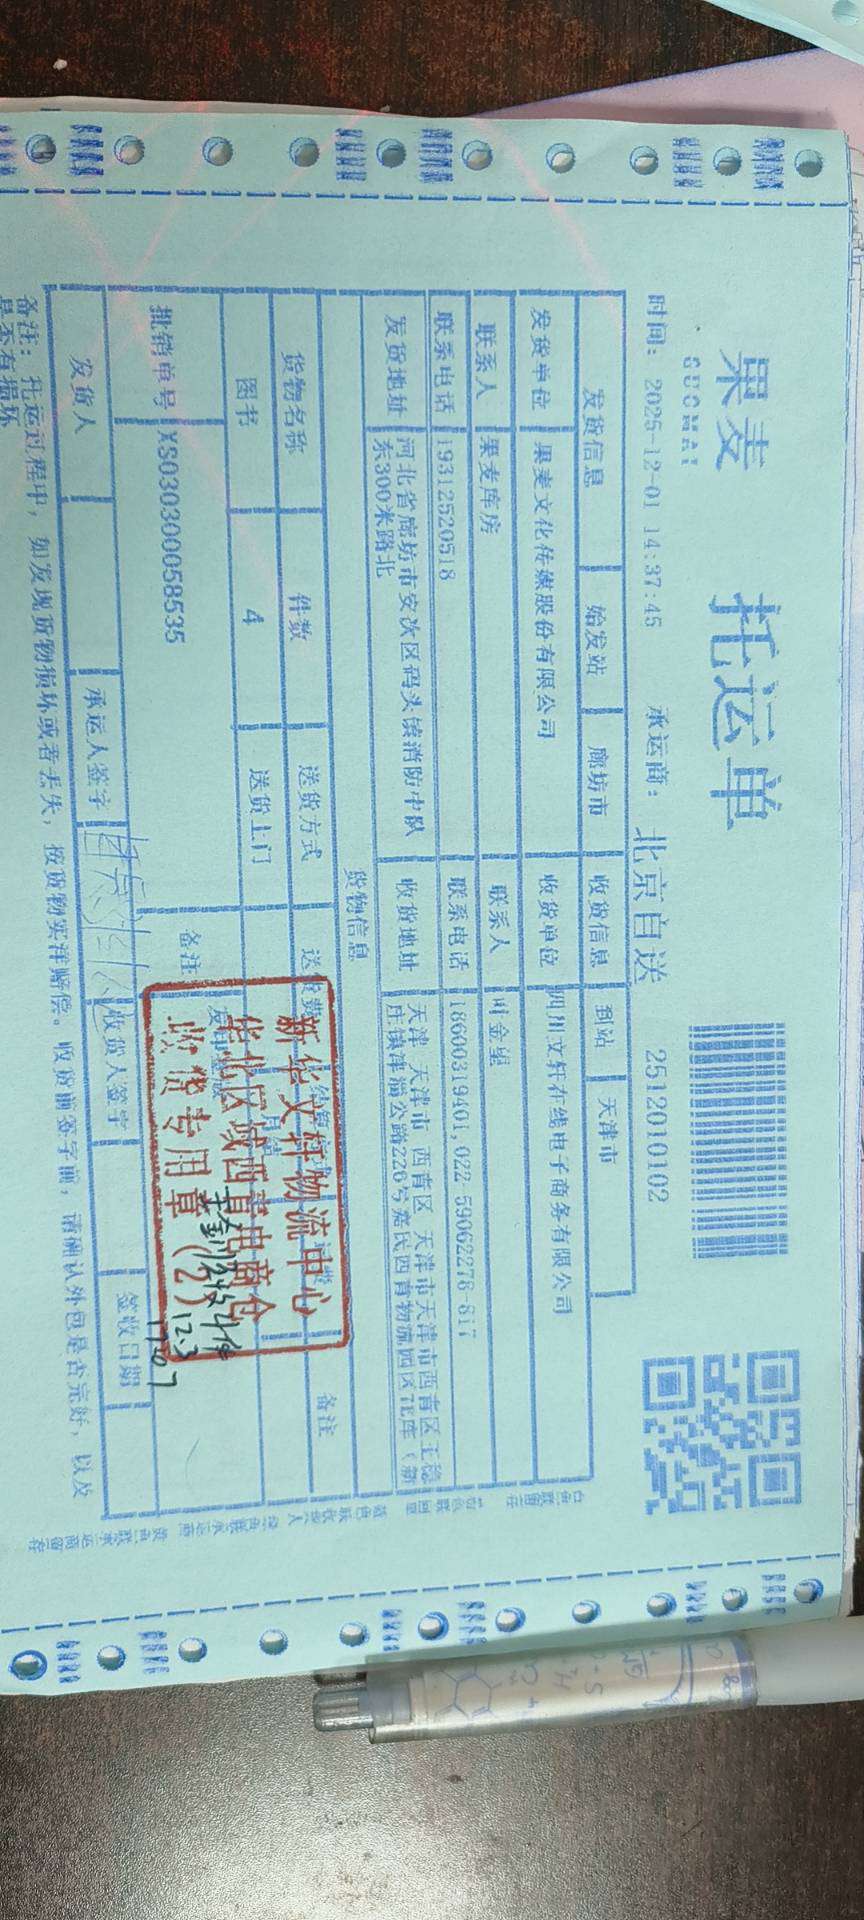 果麦
GUOMAI
托运单
时间: 2025-12-01 14:37:45 承运商: 北京自送 2512010102
发货信息 始发站 廊坊市 收货信息 到站 天津市
发货单位 果麦文化传媒股份有限公司 收货单位 四川文轩在线电子商务有限公司
联系人 果麦库房 联系人 叶金星
联系电话 19312520518 联系电话 18600319401,022-59062278-817
发货地址 河北省廊坊市安次区码头镇消防中队 收货地址 天津 天津市 西青区 天津市天津市西青区王稳
东300米路北 庄镇津淄公路226号嘉民西青物流园区7E库(新
货物信息
货物名称 件数 送货方式 送货费 备注
图书 4 送货上门
批销单号 XS030300058535 备注
新华文轩物流中心
华北区域西青电商仓
收货专用章(2)
实收4件
12.3
发货人 承运人签字 收货人签字 签收日期
备注: 托运过程中, 如发现货物损坏或者丢失, 按货物实洋赔偿。收货前签字前, 请确认外包是否完好, 以及
是否有损坏